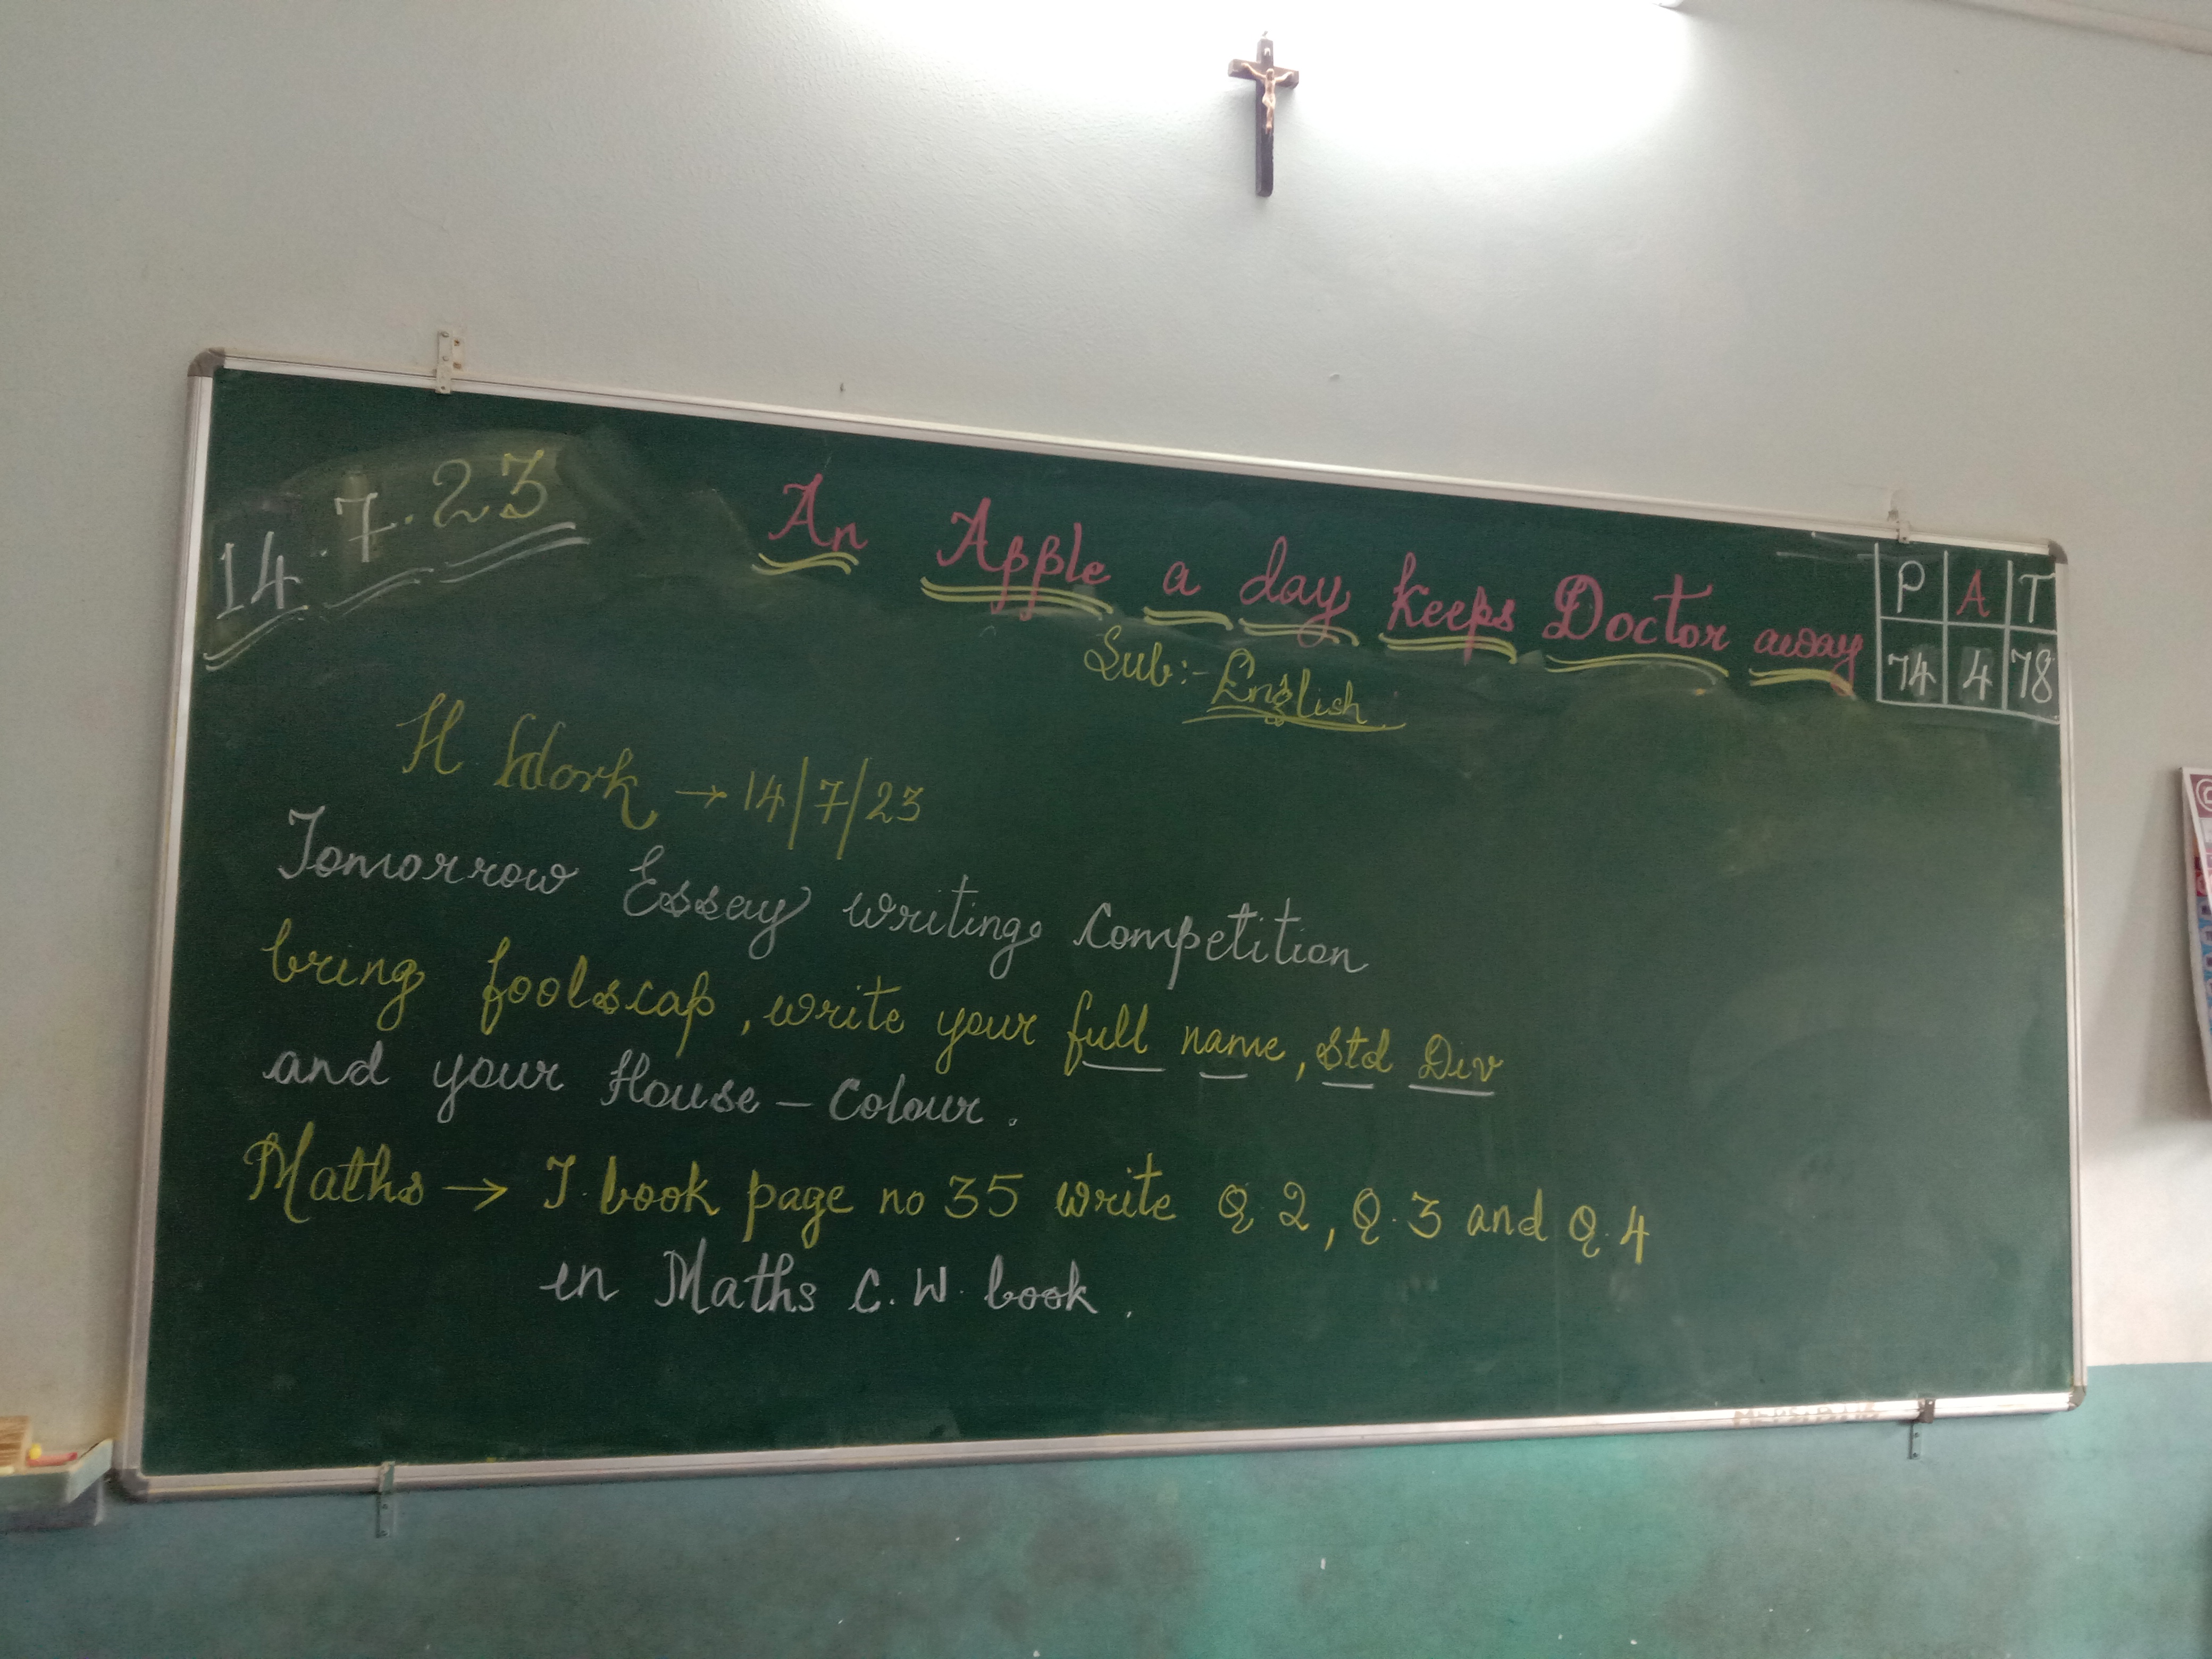 14.7.23
An Apple a day keeps Doctor away
P A T
74 4 78
Sub:- English
H Work → 14/7/23
Tomorrow Essay writing Competition
bring foolscap, write your full name, Std Div
and your House - Colour.
Maths → T. book page no 35 write Q.2, Q.3 and Q.4
in Maths C.W. book.